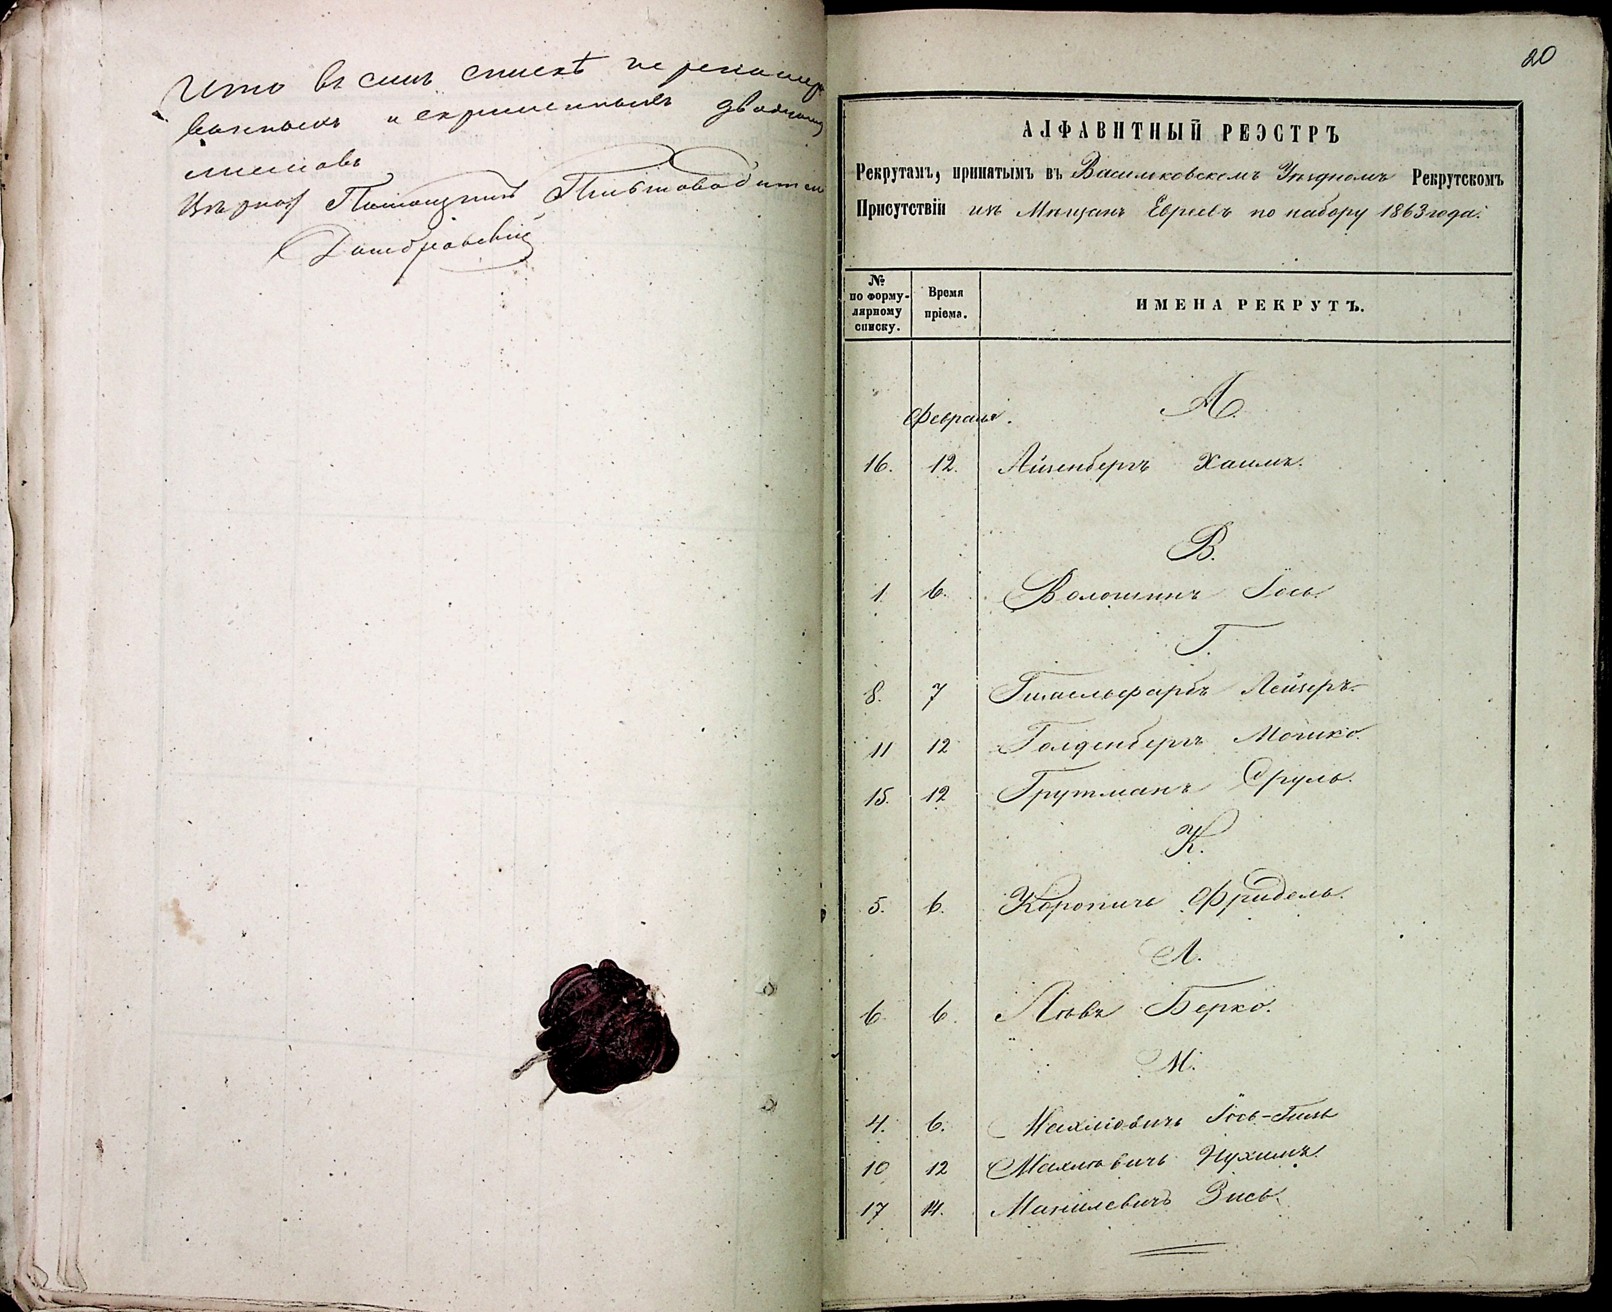 Что въ семъ списке перенумеро
ванныхъ и скрепленныхъ двадцать
листовъ
Письмоводитель
20
АЛФАВИТНЫЙ РЕЭСТРЪ
Рекрутамъ, принятымъ въ Васильковскомъ Уѣздномъ Рекрутскомъ
Присутствіи изъ Мѣщанъ Евреевъ по набору 1863 года.
№ по форму-лярному списку. Время пріема. ИМЕНА РЕКРУТЪ.
А.
Февраля.
16. 12. Айзенбергъ Хаимъ.
В.
1. 6. Волошинъ Іось.
Г.
8. 7 Гимельфарбъ Лейзеръ.
11 12 Голденбергъ Мошко.
15. 12 Грутманъ Сруль.
К.
5. 6. Коропичъ Фридель.
Л.
6 6. Лѣвъ Берко.
М.
4. 6. Махліовичъ Іось-
10 12 Махловичъ Нухимъ.
17 14. Манилевичъ Зись.